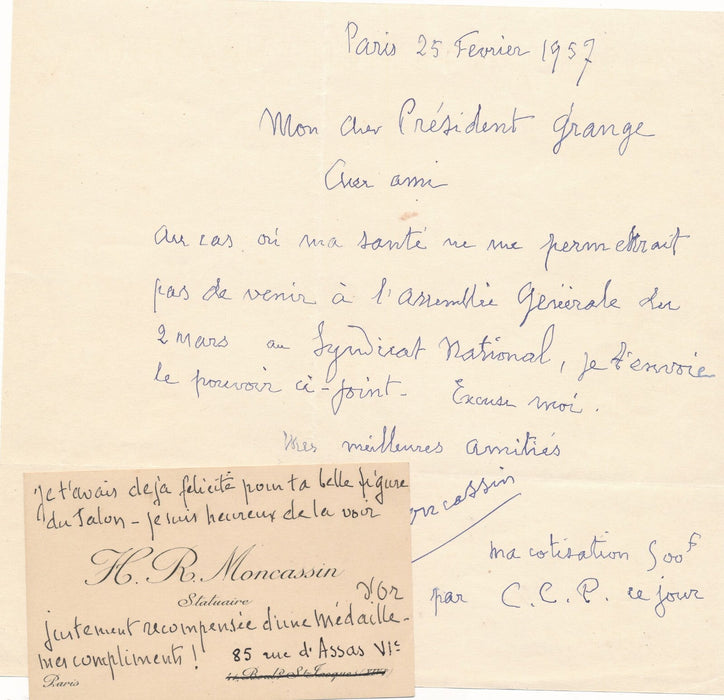 Paris 25 Février 1957
Mon cher Président Grange
Cher ami
au cas où ma santé ne me permettrait
pas de venir à l'assemblée Générale du
2 mars au Syndicat National, je t'envoie
le pouvoir ci-joint. Excuse moi.
Mes meilleures amitiés
oncassin
ma cotisation 500F
par C.C.P. ce jour
je t'avais deja felicité pour ta belle figure
du Salon - je suis heureux de la voir
H. R. Moncassin
Statuaire
d'or
justement recompensée d'une Médaille
mes compliments ! 85 rue d'Assas VIe
Paris